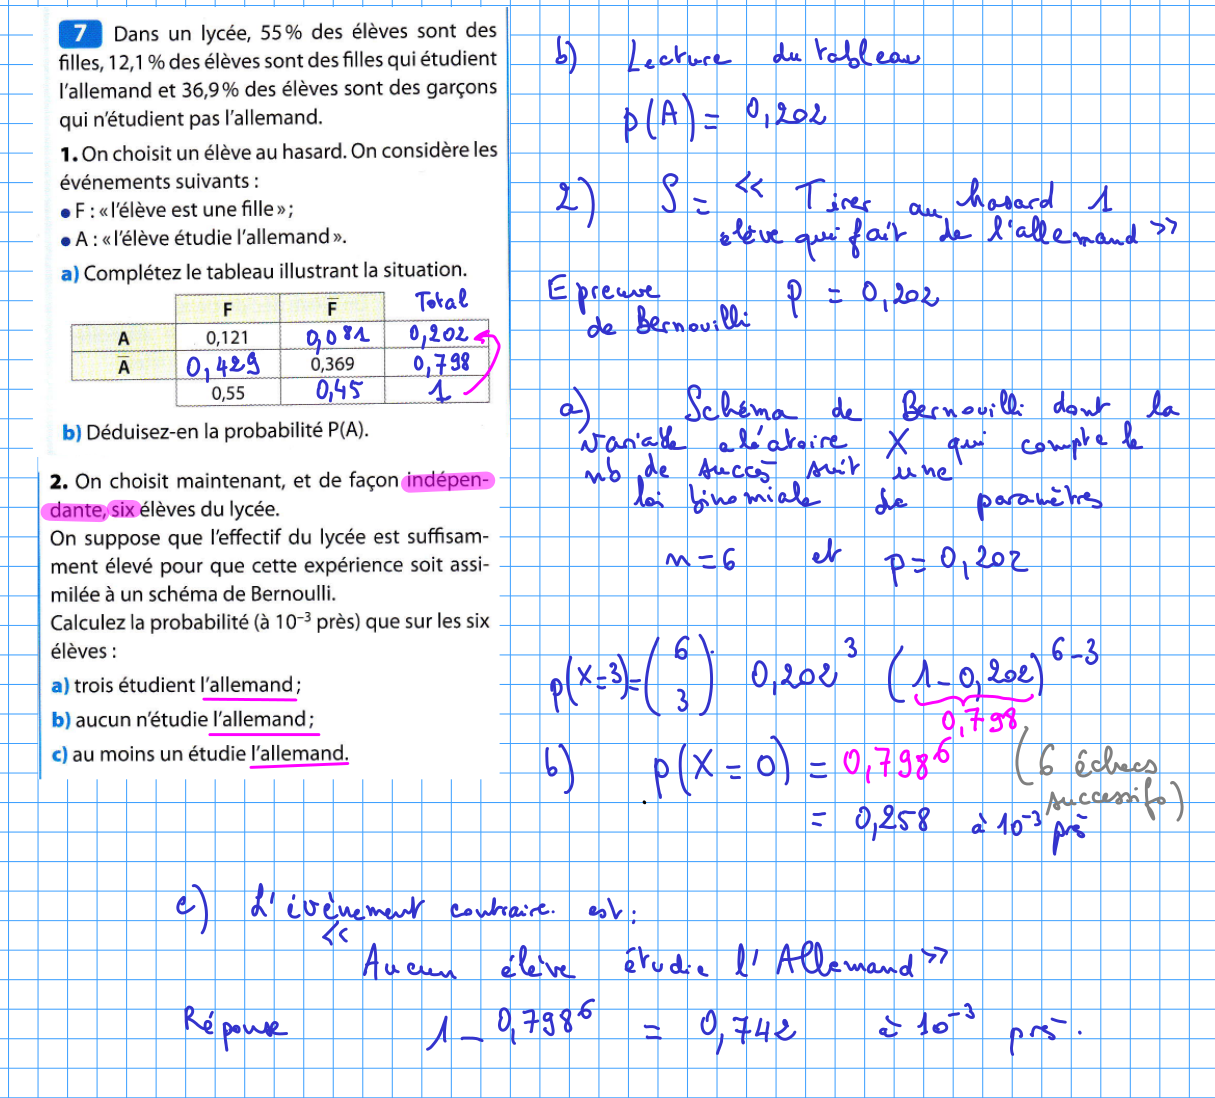 7 Dans un lycée, 55 % des élèves sont des
filles, 12,1 % des élèves sont des filles qui étudient
l'allemand et 36,9 % des élèves sont des garçons
qui n'étudient pas l'allemand.
1. On choisit un élève au hasard. On considère les
événements suivants :
• F : « l'élève est une fille » ;
• A : « l'élève étudie l'allemand ».
a) Complétez le tableau illustrant la situation.
F F̅ Total
A 0,121 0,081 0,202
A̅ 0,429 0,369 0,798
0,55 0,45 1
b) Déduisez-en la probabilité P(A).
2. On choisit maintenant, et de façon indépen-
dante, six élèves du lycée.
On suppose que l'effectif du lycée est suffisam-
ment élevé pour que cette expérience soit assi-
milée à un schéma de Bernoulli.
Calculez la probabilité (à 10⁻³ près) que sur les six
élèves :
a) trois étudient l'allemand ;
b) aucun n'étudie l'allemand ;
c) au moins un étudie l'allemand.
b) Lecture du tableau
p(A) = 0,202
2) S = « Tirer au hasard 1
élève qui fait de l'allemand »
Epreuve p = 0,202
de Bernouilli
a) Schéma de Bernouilli dont la
variable aléatoire X qui compte le
nb de succès suit une
loi binomiale de paramètres
n = 6 et p = 0,202
p(X=3) = (6 3) 0,202³ (1 - 0,202)⁶⁻³
0,798
b) p(X = 0) = 0,798⁶ (6 échecs
successifs)
= 0,258 à 10⁻³ près
c) L'évènement contraire est :
« Aucun élève étudie l'Allemand »
Réponse 1 - 0,798⁶ = 0,742 à 10⁻³ près.